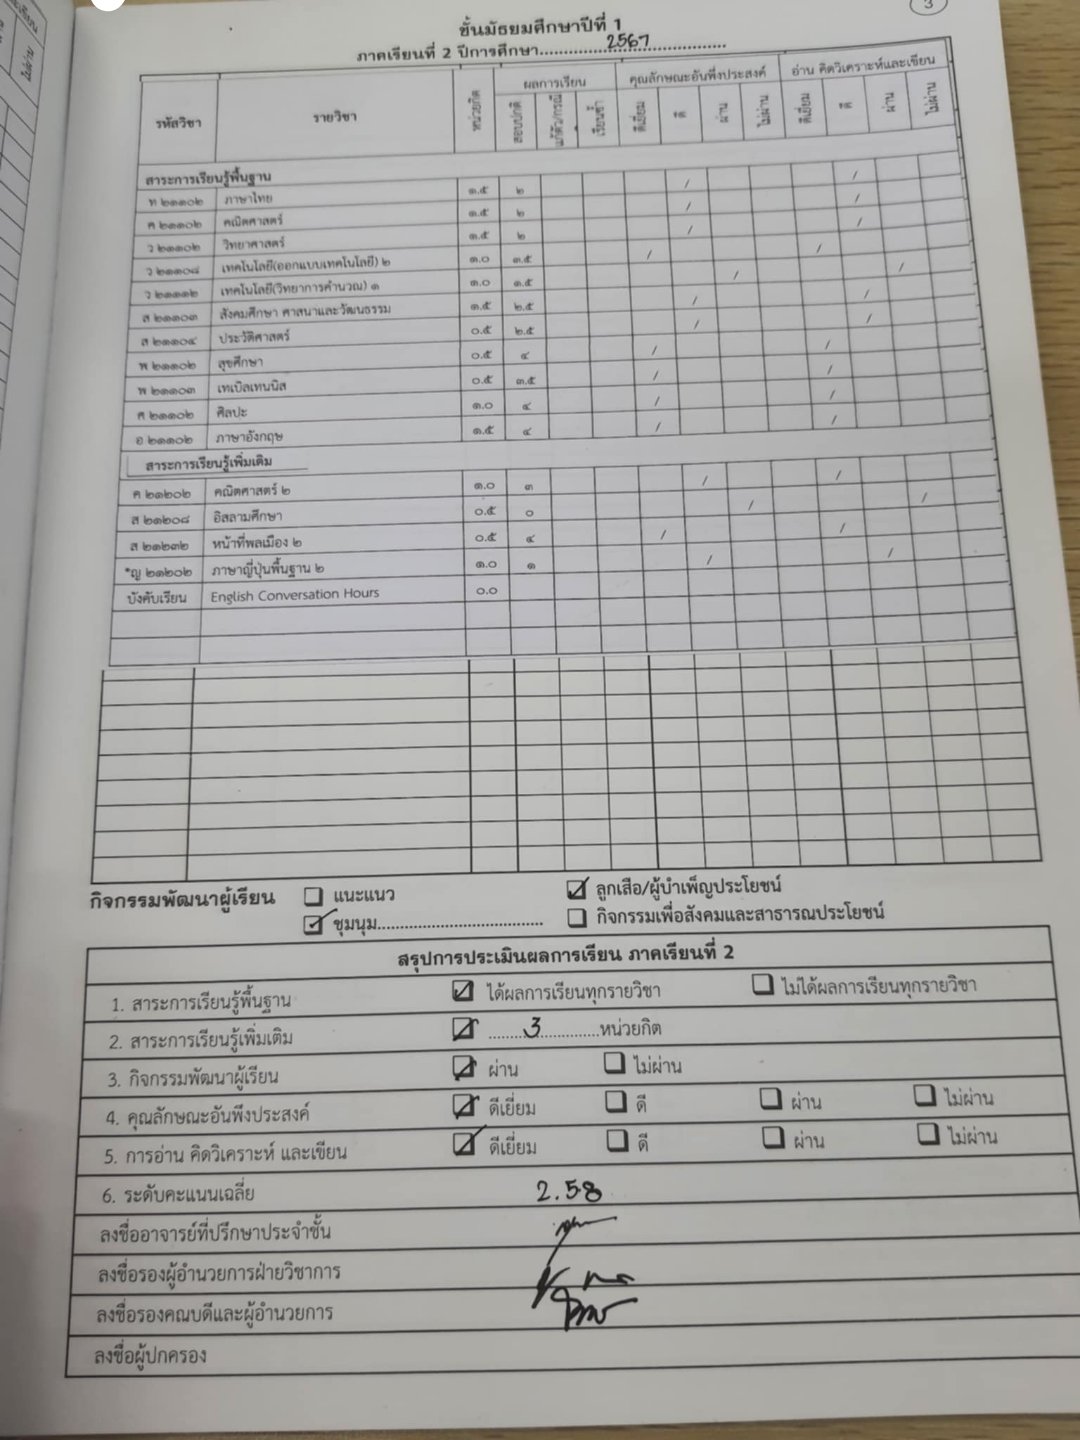 3
ชั้นมัธยมศึกษาปีที่ 1
ภาคเรียนที่ 2 ปีการศึกษา 2567
รหัสวิชา รายวิชา หน่วยกิต ผลการเรียน คุณลักษณะอันพึงประสงค์ อ่าน คิดวิเคราะห์และเขียน
สอบปกติ แก้ตัว/กรณี เรียนซ้ำ ดีเยี่ยม ดี ผ่าน ไม่ผ่าน ดีเยี่ยม ดี ผ่าน ไม่ผ่าน
สาระการเรียนรู้พื้นฐาน
ท ๒๑๑๐๒ ภาษาไทย ๑.๕ ๒ / /
ค ๒๑๑๐๒ คณิตศาสตร์ ๑.๕ ๒ / /
ว ๒๑๑๐๒ วิทยาศาสตร์ ๑.๕ ๒ / /
ว ๒๑๑๐๘ เทคโนโลยี(ออกแบบเทคโนโลยี) ๒ ๑.๐ ๓.๕ / /
ว ๒๑๑๑๒ เทคโนโลยี(วิทยาการคำนวณ) ๑ ๑.๐ ๑.๕ / /
ส ๒๑๑๐๓ สังคมศึกษา ศาสนาและวัฒนธรรม ๑.๕ ๒.๕ / /
ส ๒๑๑๐๔ ประวัติศาสตร์ ๐.๕ ๒.๕ / /
พ ๒๑๑๐๒ สุขศึกษา ๐.๕ ๔ / /
พ ๒๑๑๐๓ เทเบิลเทนนิส ๐.๕ ๓.๕ / /
ศ ๒๑๑๐๒ ศิลปะ ๑.๐ ๔ / /
อ ๒๑๑๐๒ ภาษาอังกฤษ ๑.๕ ๔ / /
สาระการเรียนรู้เพิ่มเติม
ค ๒๑๒๐๒ คณิตศาสตร์ ๒ ๑.๐ ๓ / /
ส ๒๑๒๐๘ อิสลามศึกษา ๐.๕ ๐ / /
ส ๒๑๒๓๒ หน้าที่พลเมือง ๒ ๐.๕ ๔ / /
*ญ ๒๑๒๐๒ ภาษาญี่ปุ่นพื้นฐาน ๒ ๑.๐ ๑ / /
บังคับเรียน English Conversation Hours ๐.๐
กิจกรรมพัฒนาผู้เรียน แนะแนว ลูกเสือ/ผู้บำเพ็ญประโยชน์
ชุมนุม กิจกรรมเพื่อสังคมและสาธารณประโยชน์
สรุปการประเมินผลการเรียน ภาคเรียนที่ 2
1. สาระการเรียนรู้พื้นฐาน ได้ผลการเรียนทุกรายวิชา ไม่ได้ผลการเรียนทุกรายวิชา
2. สาระการเรียนรู้เพิ่มเติม 3 หน่วยกิต
3. กิจกรรมพัฒนาผู้เรียน ผ่าน ไม่ผ่าน
4. คุณลักษณะอันพึงประสงค์ ดีเยี่ยม ดี ผ่าน ไม่ผ่าน
5. การอ่าน คิดวิเคราะห์ และเขียน ดีเยี่ยม ดี ผ่าน ไม่ผ่าน
6. ระดับคะแนนเฉลี่ย 2.58
ลงชื่ออาจารย์ที่ปรึกษาประจำชั้น
ลงชื่อรองผู้อำนวยการฝ่ายวิชาการ
ลงชื่อรองคณบดีและผู้อำนวยการ
ลงชื่อผู้ปกครอง